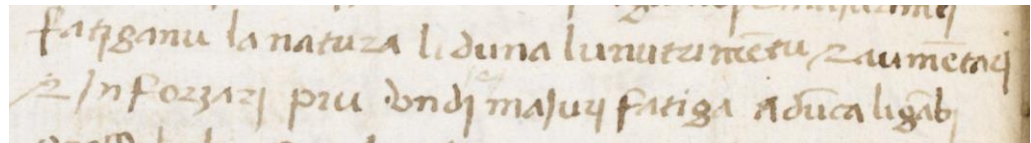 fatiganu la natura li duna lu nutrimētu ⁊ aumētari
⁊ Inforzari pru undi majuri fatiga aduca li gābi